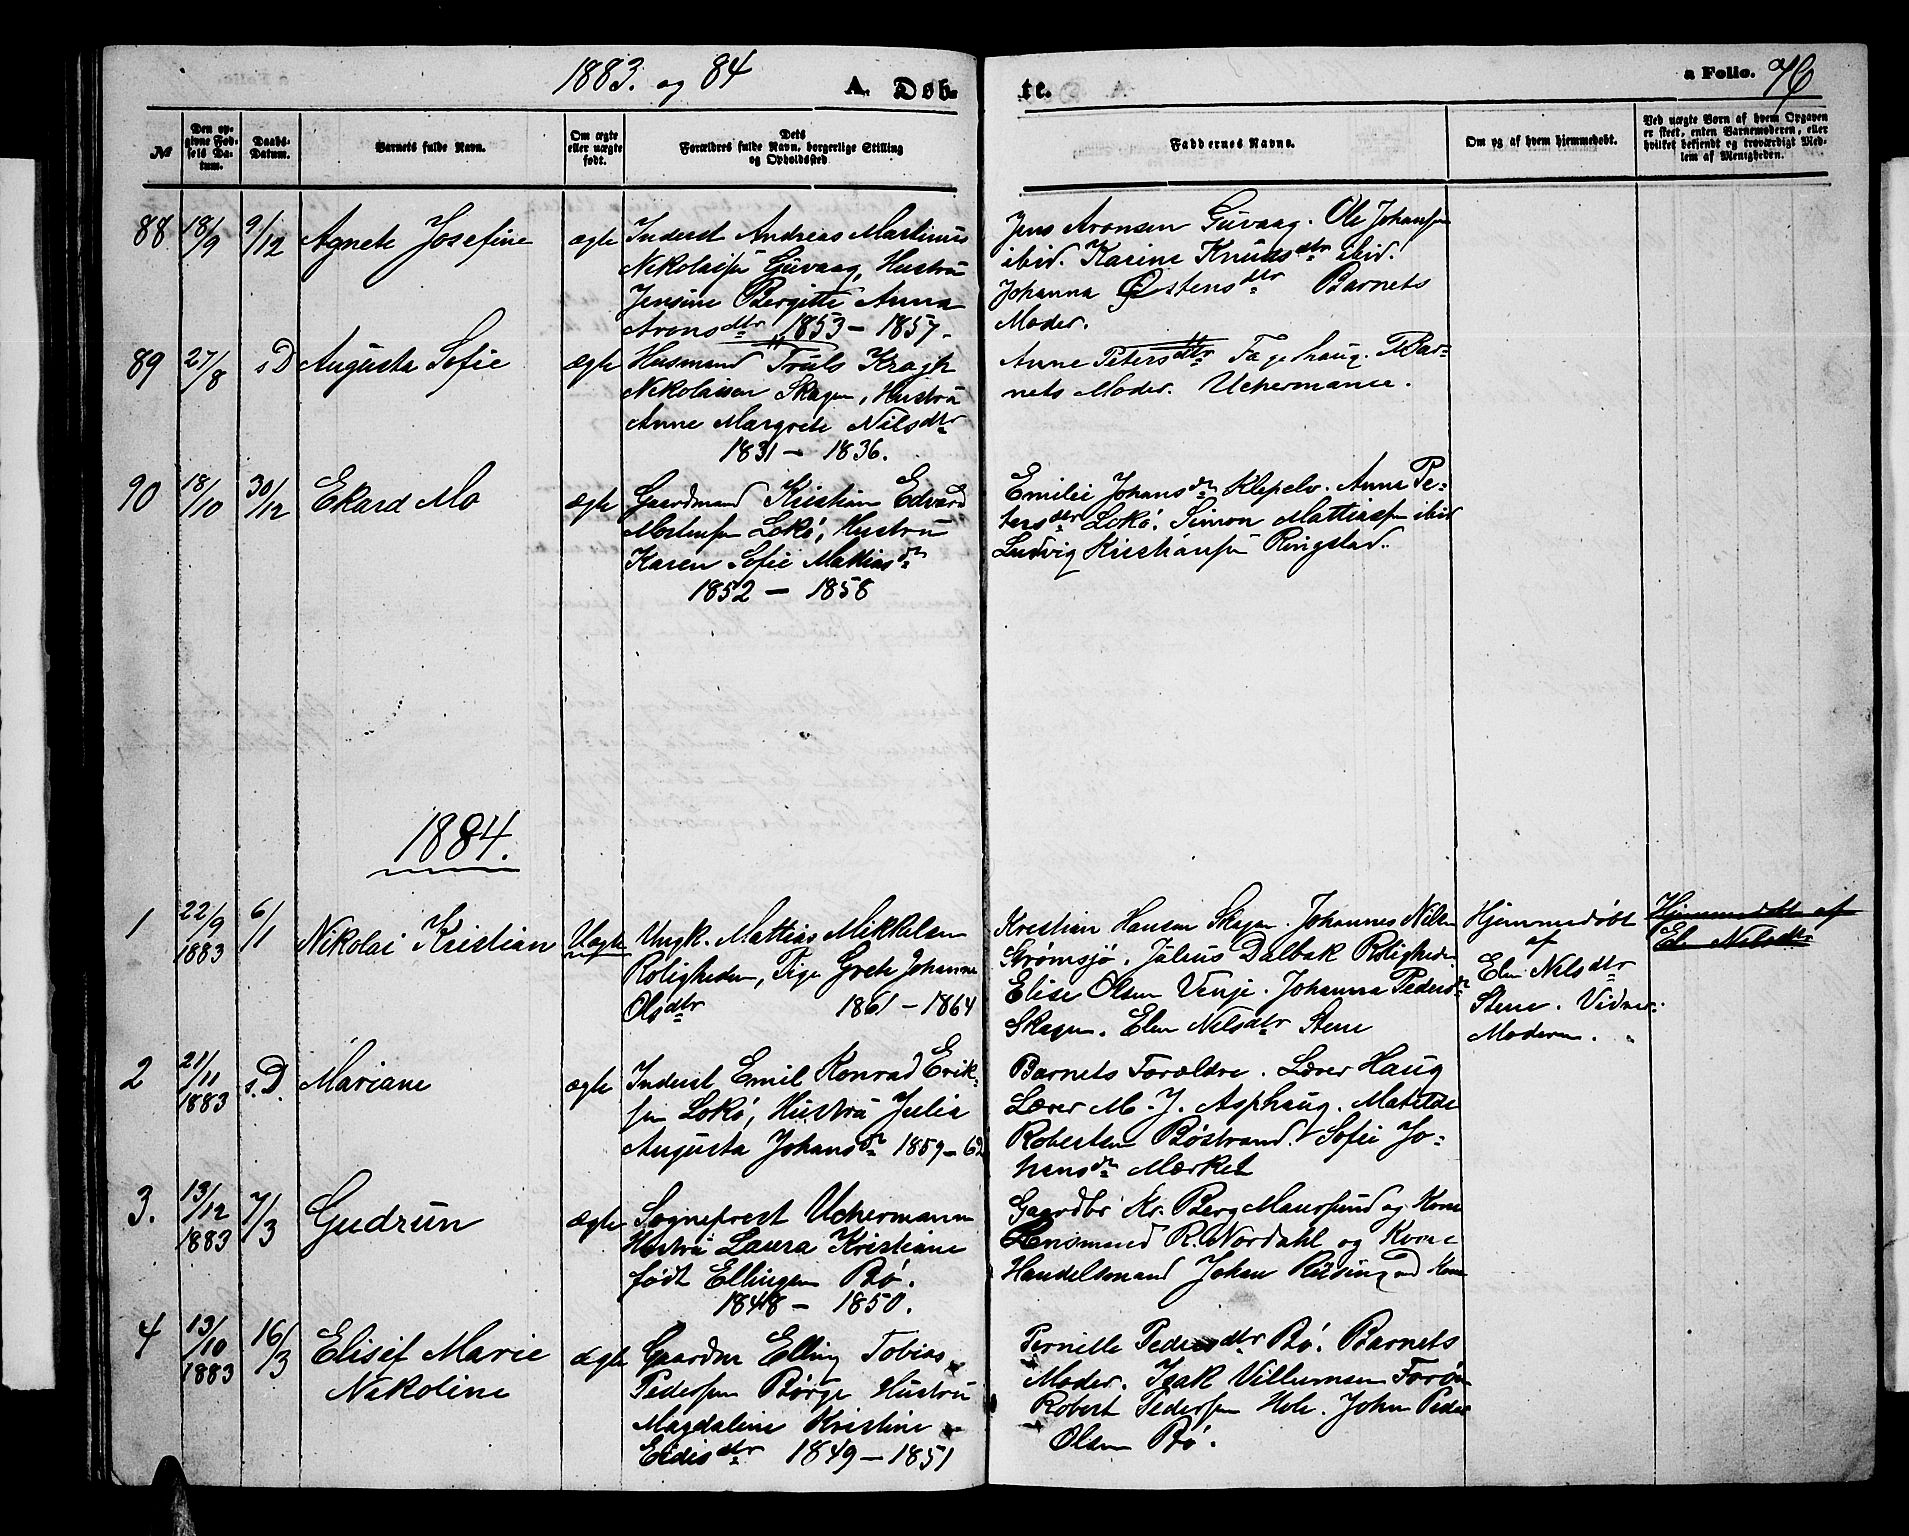 1883. og 84
A. Døb-
te.
a Folio. 76
№
Den op-
givne Fød-
sels Da-
tum.
Daabs-
Datum.
Barnets fulde Navn.
Om ægte
eller uægte
født.
Dets
Forældres fulde Navn, borgerlige Stilling
og Opholdssted.
Faddernes Navne.
Om og af hvem hjemmedøbt.
Ved uægte Børn af hvem Opgaven
er skeet, enten Barnemoderen, eller
hvilket bekjendt og troværdigt Med-
lem af Menigheden.
88 18/9 9/12 Agnete Josefine ægte Inderst Andreas Martinus
Nikolaisen Guvaag, Hustru
Jensine Bergitte Anna
Arons dtr 1853 - 1857.
Jens Aronsen Guvaag. Ole Johansen
ibid. Karine Knuds dtr ibid.
Johanna Østens dtr Barnets
Moder.
89 27/8 s D Augusta Sofie ægte Husmand Truls Kragh
Nikolaisen Skagen, Hustru
Anne Margrete Nilsdtr
1831 - 1836.
Anne Peters dtr Tagehaug. Bar-
nets Moder. Uchermann.
90 18/10 30/12 Ekard Mo ægte Gaardmand Kristian Edvard
Mortensen Lokø, Hustru
Karen Sofie Mattias dr
1852 - 1858
Emilie Johans dr Klepelv. Anna Pe-
ters dtr Lokø. Simon Mattiassen ibid
Ludvig Kristiansen Ringstad.
1884.
1 22/9 1883 6/1 Nikolai Kristian Uægte Ungk. Mattias Mikkelsen
Roligheden, Pige Grete Johanne
Ols dtr 1861 - 1864
Kristian Hansen Skagen. Johannes Nilsen
Strømsjø. Julius Dalbak Roligheden
Elise Olsen Venje. Johanna Peders dr
Skagen. Elen Nels dtr Stene
Hjemmedøbt
af
Elen Nels dtr
Stene. Vidner:
Moderen.
Hjemmedøbt af
Elen Nelsdtr
2 21/11 1883 s. D. Mariane ægte Inderst Emil Konrad Erik-
sen Lokø, Hustru Julia
Augusta Johans dr 1859 - 62
Barnets Forældre. Lærer Haug
Lærer M. J. Asphaug. Matilde
Robertsen Bøstrand. Sofie Jo-
hans dr Mærket
3. 13/12 1883 7/3 Gudrun ægte Sogneprest Uchermann
Hustru Laura Kristiane
født Ellingsen Bø.
1848 - 1850.
Gaardbr Kr. Berg Maursund og Kone
Lensmand R. Nordahl og Kone
Handelsmand Johan Rüsing og Kone
4 13/10 1883 16/3 Elisef Marie
Nikoline
ægte Gaardm Elling Tobias
Pedersen Børge Hustru
Magdaline Kristine
Eidis dtr 1849 - 1851
Pernille Peders dtr Bø. Barnets
Moder. Isak Villumsen Forøen
Robert Pedersen Hole. John Peder
Olsen Bø.